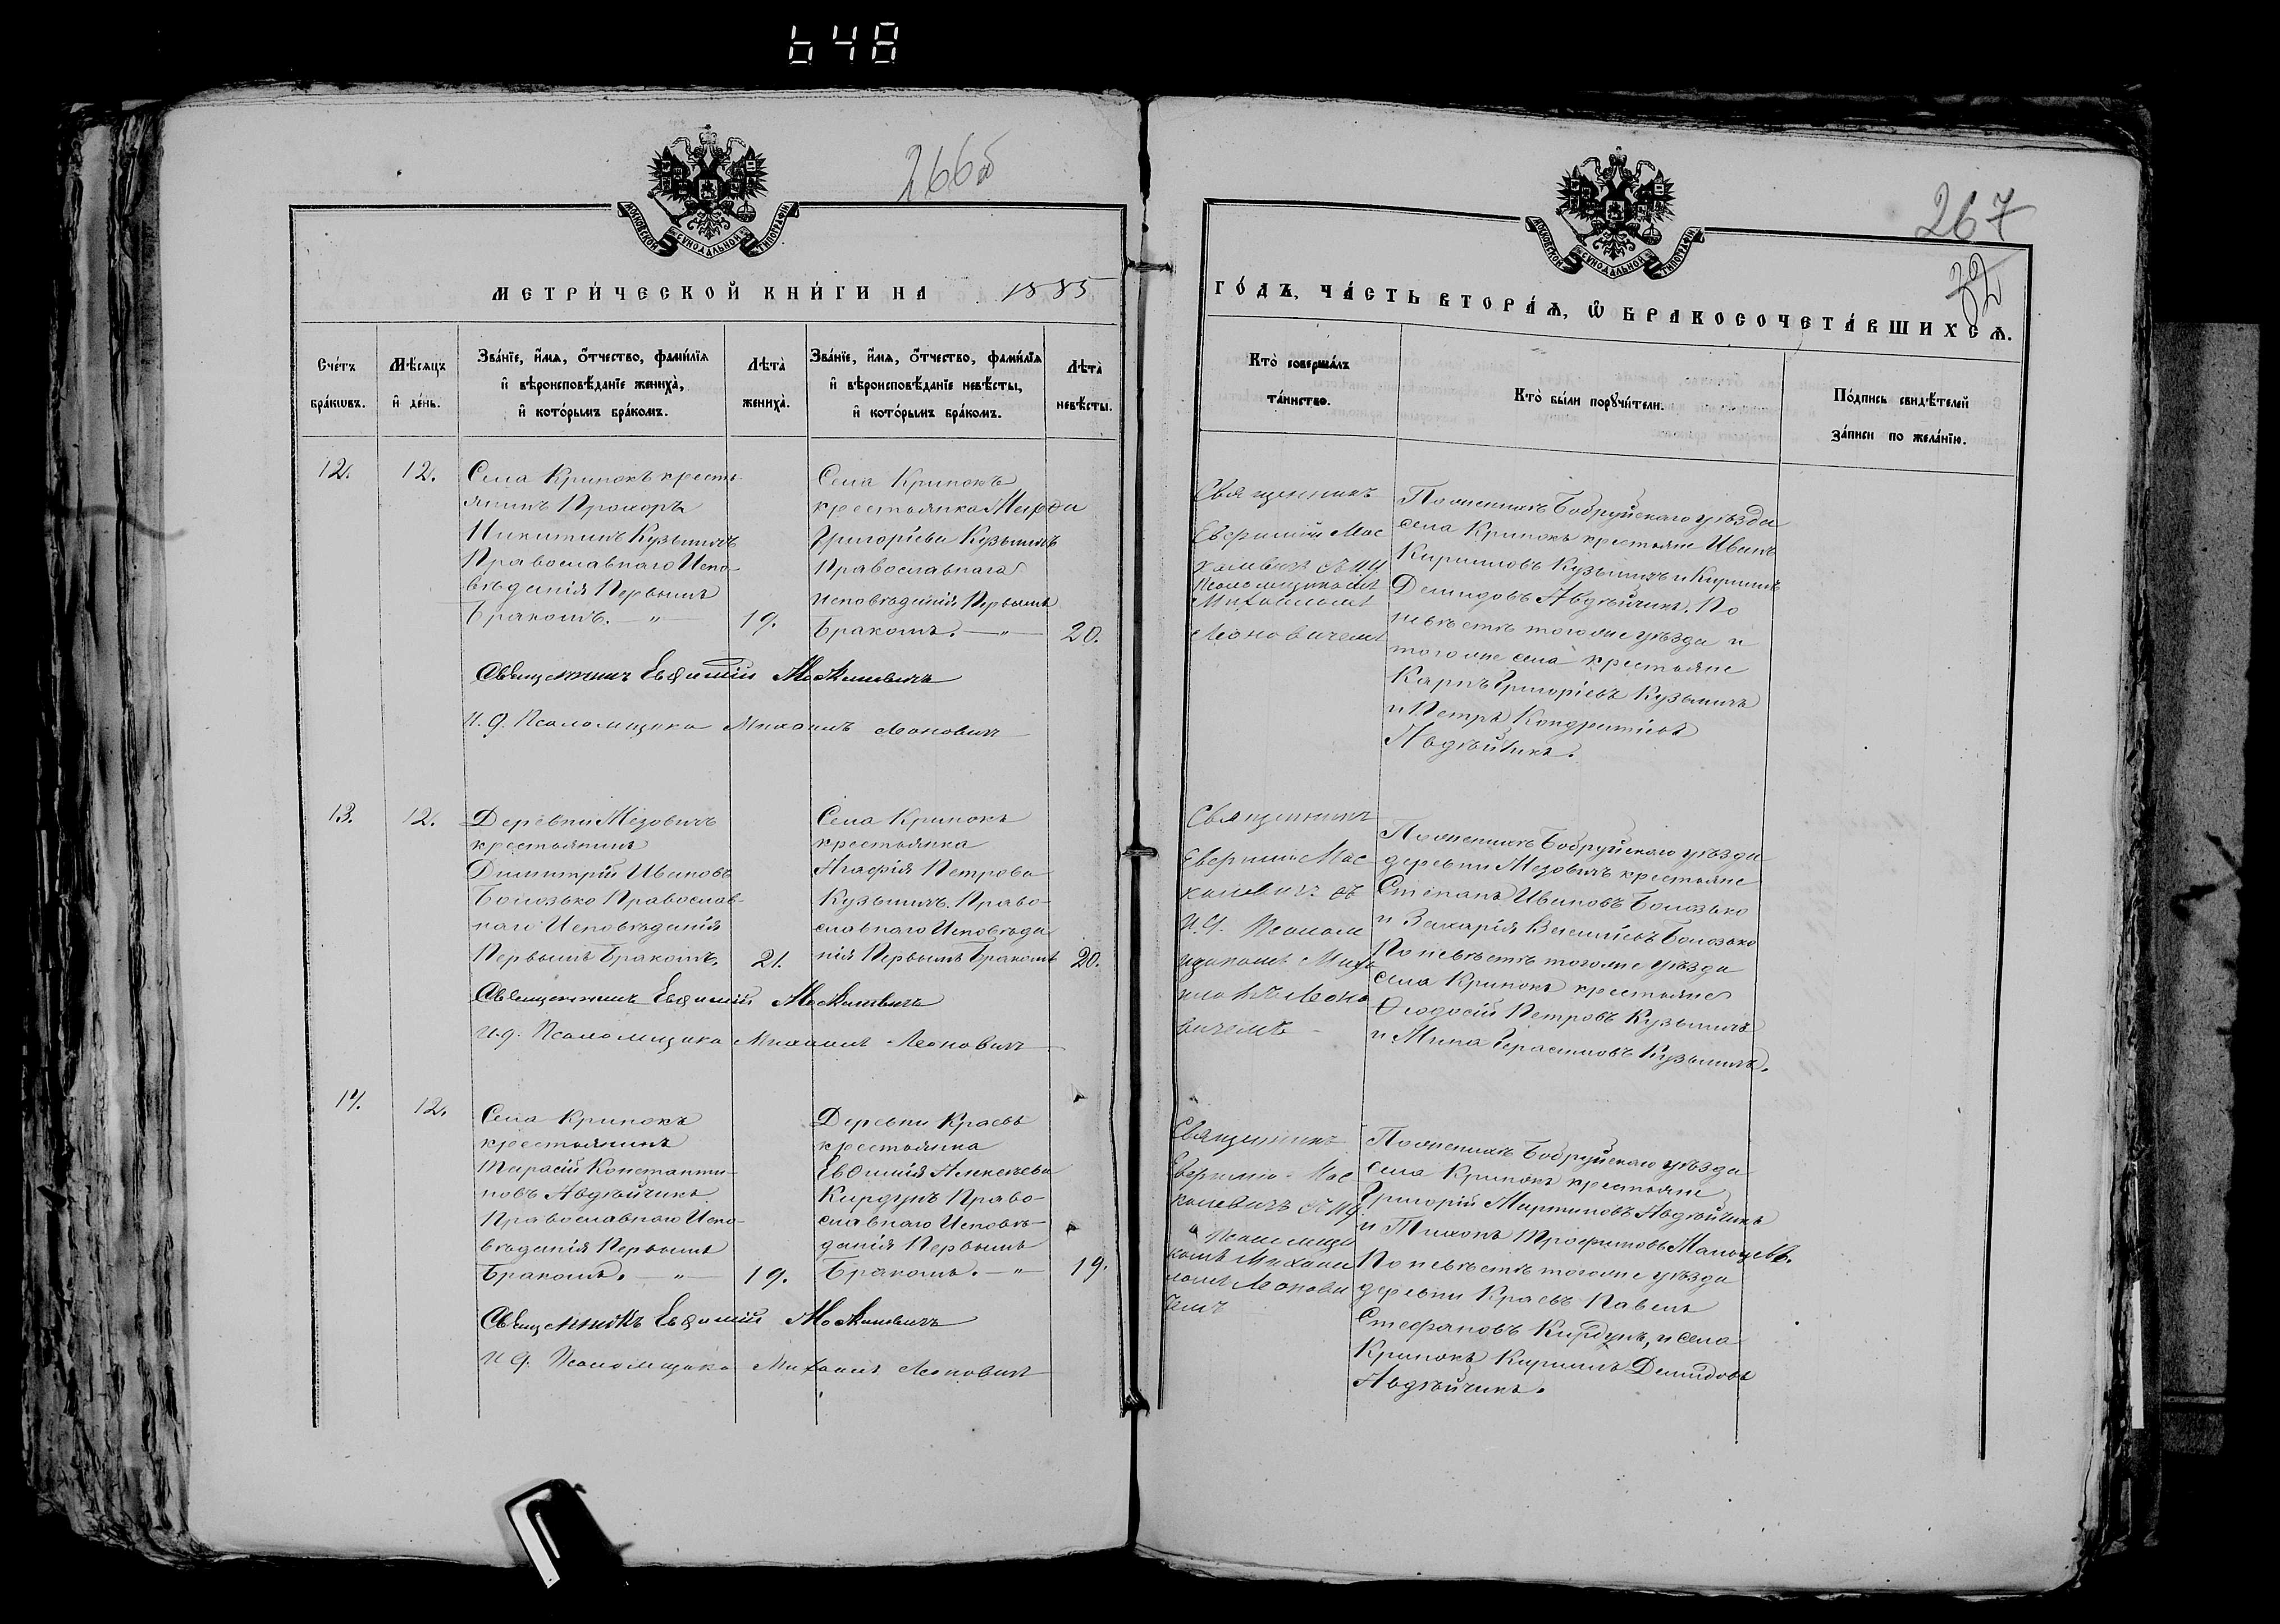 648
266б
МОСКОВСКОЙ СУНОДАЛЬНОЙ ТИПОГРАФІИ
МЕТРИ́ЧЕСКОЙ КНИ́ГИ НА 1885
Сче́тъ бра́кѡвъ.
Мѣ́сяцъ и҆ де́нь.
Зва́нїе, и҆́мѧ, ѻ҆́тчество, фами́лїѧ
и҆ вѣроисповѣ́данїе жениха̀,
и҆ кото́рымъ бра́комъ.
Лѣта̀ жениха̀.
Зва́нїе, и҆́мѧ, ѻ҆́тчество, фами́лїѧ
и҆ вѣроисповѣ́данїе невѣ́сты,
и҆ кото́рымъ бра́комъ.
Лѣта̀ невѣ́сты.
12.
12.
Села Кринокъ кресть-
янинъ Прохоръ
Никитинъ Кузьмичъ
Православнаго Испо-
вѣданія Первымъ
Бракомъ. — „ —
19.
Села Кринокъ
крестьянка Марфа
Григоріева Кузьмичъ
Православнаго
исповѣданія Первымъ
Бракомъ. — „ —
20.
Священникъ Евфимій Маскалевичъ
И. д. Псаломщика Михаилъ Леоновичъ
13.
12.
Деревни Мезовичъ
крестьянинъ
Димитрій Ивановъ
Болозько Православ-
наго Исповѣданія
Первымъ Бракомъ.
21.
Села Кринокъ
крестьянка
Агафія Петрова
Кузьмичъ. Право-
славнаго Исповѣда
нія Первымъ Бракомъ
20.
Священникъ Евфимій Маскалевичъ
И. д. Псаломщика Михаилъ Леоновичъ
14.
12.
Села Кринокъ
крестьянинъ
Тарасій Константи-
новъ Авдѣйчикъ
Православнаго Испо-
вѣданія Первымъ
Бракомъ. — „ —
19.
Деревни Краевъ
крестьянка
Евѳимія Алексѣева
Кирдунъ Право-
славнаго Исповѣ-
данія Первымъ
Бракомъ. — „ —
19.
Священникъ Евфимій Маскалевичъ
И д. Псаломщика Михаилъ Леоновичъ
267
32
МОСКОВСКОЙ СУНОДАЛЬНОЙ ТИПОГРАФІИ
ГО́ДЪ, ЧА́СТЬ ВТОРА́Ѧ, Ѽ БРАКОСОЧЕТА́ВШИХСѦ.
Кто̀ соверша́лъ
та́инство.
Кто̀ бы́ли порꙋчи́тели.
По́дпись свидѣ́телей
за́писи по жела́нїю.
Священникъ
Евфимій Мас
калевичъ съ И Д
Псаломщикомъ
Михаиломъ
Леоновичемъ
По женихѣ Бобруйскаго уѣзда
села Кринокъ крестьяне Иванъ
Кирилловъ Кузьмичъ и Кириллъ
Демидовъ Авдѣйчикъ. По
невѣстѣ тогоже уѣзда и
тогоже села крестьяне
Карпъ Григоріевъ Кузьмичъ
и Петръ Кондратіевъ
Авдѣйчикъ.
Священникъ
Евфимій Мас
калевичъ съ
И. Д. Псалом
щикомъ Миха
иломъ Леоно
вичемъ —
По женихѣ Бобруйскаго уѣзда
деревни Мезовичъ крестьяне
Степанъ Ивановъ Болозько
и Захарія Болозько
По невѣстѣ тогоже уѣзда
села Кринокъ крестьяне
Ѳеодосій Петровъ Кузьмичъ
и Мина Герасимовъ Кузьмичъ.
Священникъ
Евфимій Мас
калевичъ съ И Д
Псаломщи
комъ Михаи
ломъ Леонови
чемъ
По женихѣ Бобруйскаго уѣзда
села Кринокъ крестьяне
Григорій Мартиновъ Авдѣйчикъ
и Тихонъ Трофимовъ
По невѣстѣ тогоже уѣзда
деревни Краевъ Павелъ
Стефановъ Кирдунъ, и села
Кринокъ Кириллъ Демидовъ
Авдѣйчикъ.